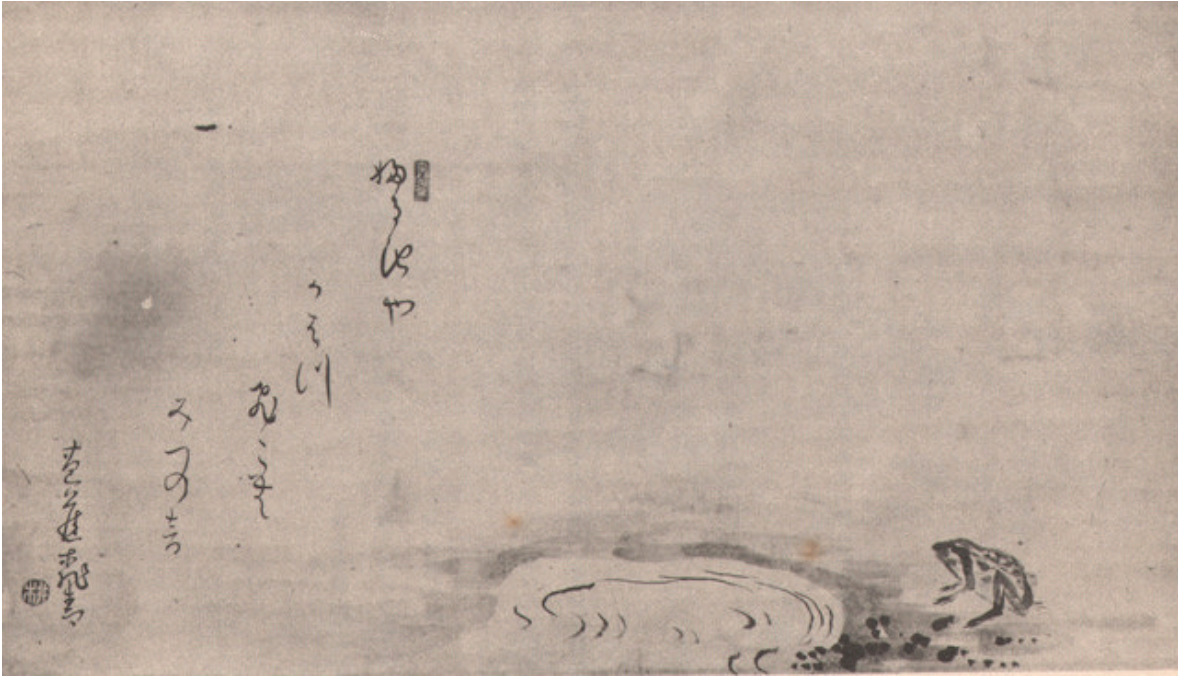 ふる池や
かはつ
飛こむ
水の音
芭蕉桃青